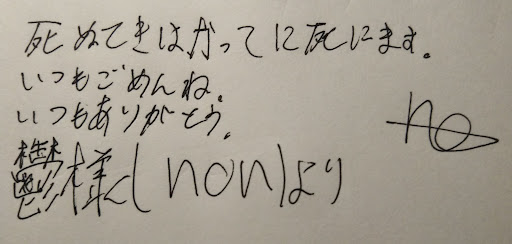 死ぬてきはかってに死にます。
いつもごめんね。
いつもありがとう。
鬱様(non)より
no